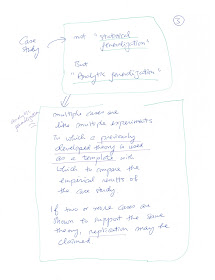 5
Case
Study
not "statistical
generalization"
But
"Analytic generalization"
multiple cases are
like multiple experiments
in which a previously
developed theory is used
as a template with
which to compare the
empirical results of
the case study
If two or more cases are
shown to support the same
theory, replication may be
claimed